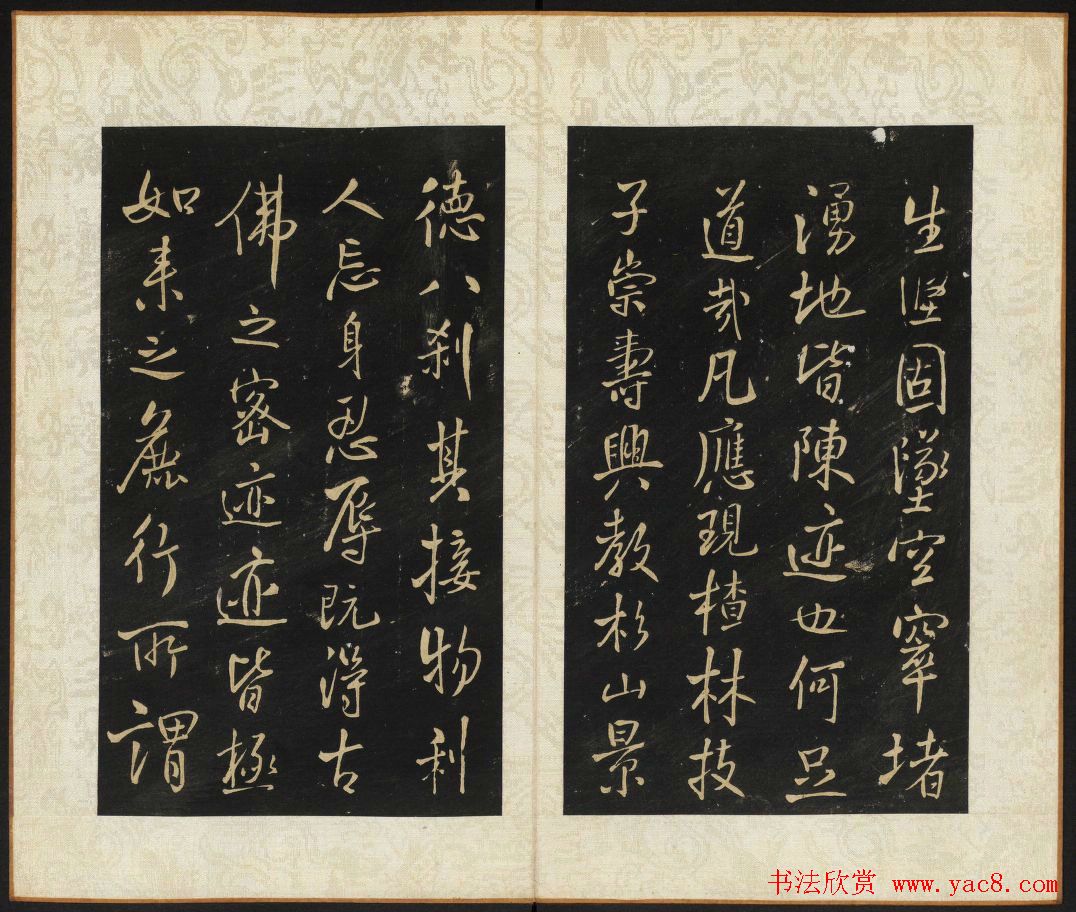 生坚固墜空窣堵
湧地皆陳迹也何足
道哉凡應現楂林技
子崇壽興教杉山景
德八刹其接物利
人忘身忍辱既淂古
佛之密迹迹皆極
如来之麁行所謂
书法欣赏 www.yac8.com